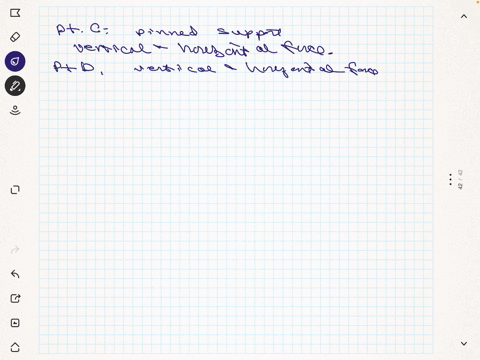 pt. C: pinned support
vertical & horizontal force.
Pt D. vertical & horizontal force